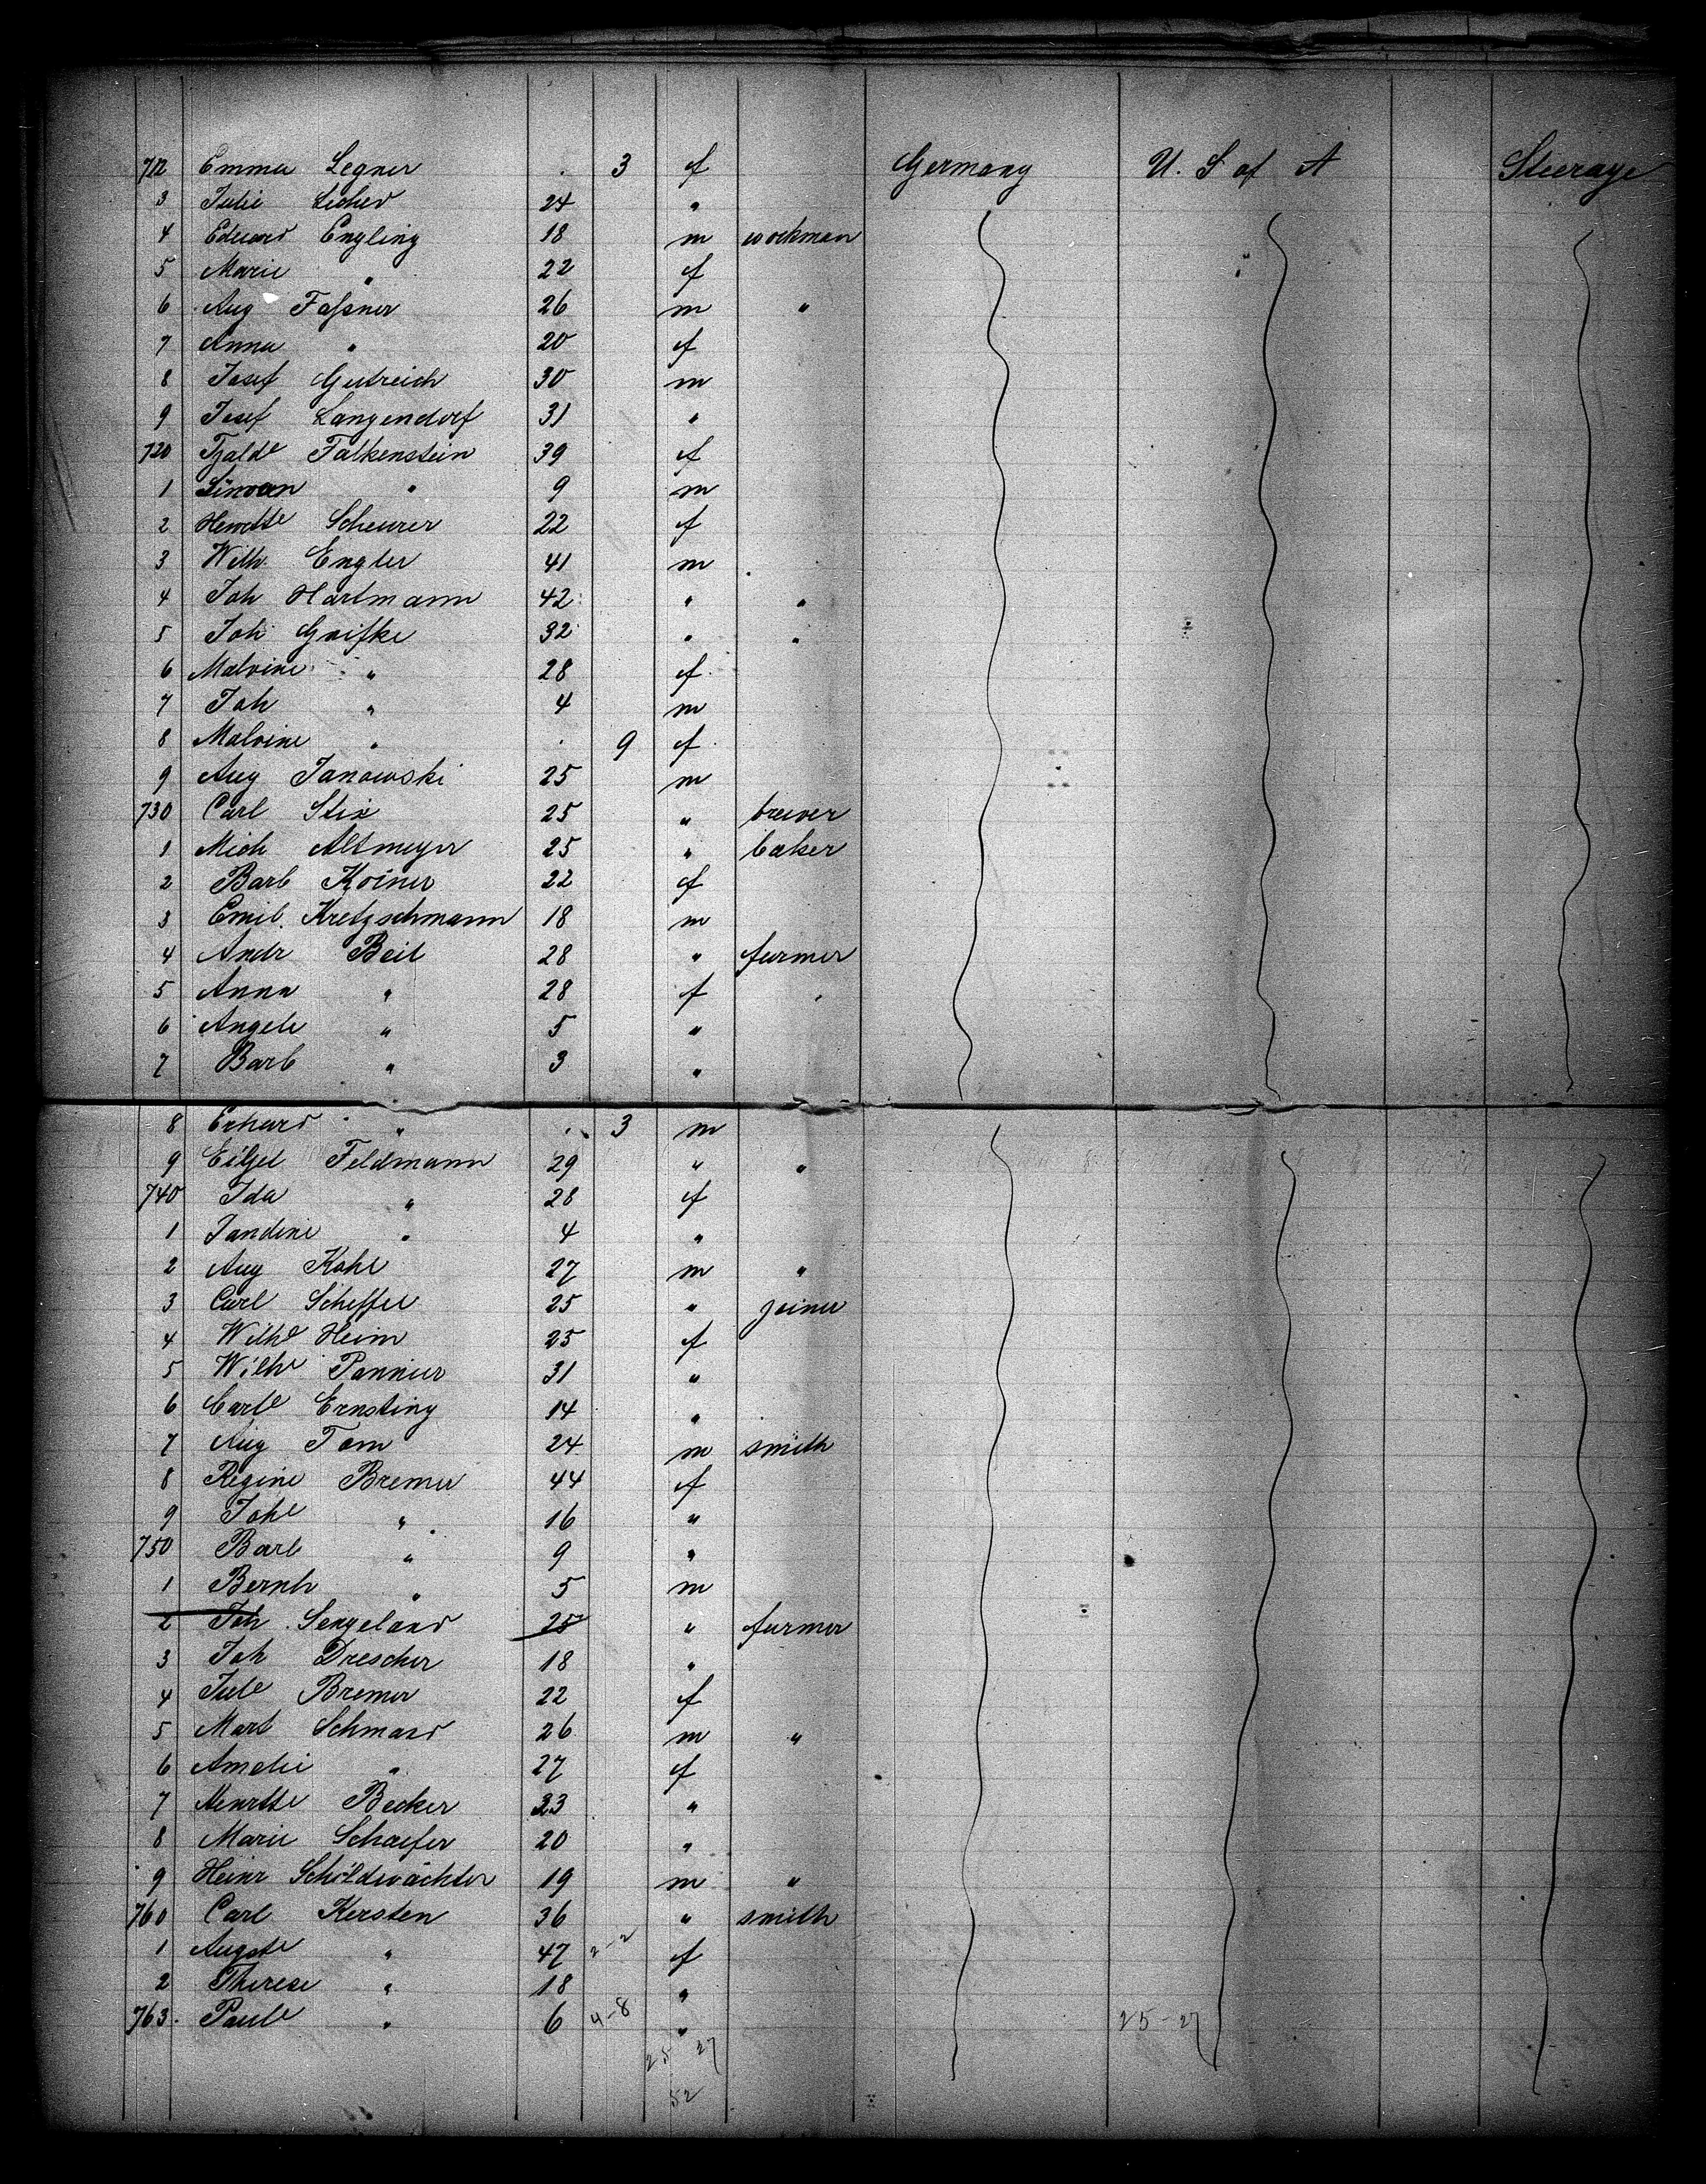 712 Emma Legner . 3 f Germany U. S of A Steerage
3 Julie 24 "
4 Eduard Engling 18 m workman
5 Marie " 22 f
6 Aug Faßner 26 m "
7 Anna " 20 f
8 Josef Gutreich 30 m
9 Josef Langendorf 31 "
720 Falkenstein 39 f
1 " 9 m
2 Henrtte Scheurer 22 f
3 Wilh. Engler 41 m
4 Joh Hartmann 42 " "
5 Joh Grifke 32 " "
6 Malvine " 28 f
7 Joh " 4 m
8 Malvine " . 9 f
9 Aug Janowski 25 m
730 Carl Stix 25 " brewer
1 Mich Altmeyer 25 " baker
2 Barb Koiner 22 f
3 Emil Kretzschmann 18 m
4 Andr Beil 28 " farmer
5 Anna " 28 f
6 Angele " 5 "
7 Barb " 3 "
8 Erhard " . 3 m
9 Feldmann 29 " "
740 Ida " 28 f
1 Jandine " 4 "
2 Aug Kohl 27 m "
3 Carl Scheffel 25 " joiner
4 Wilhe Heim 25 f
5 Wilhe Pannier 31 "
6 Carle Ernsting 14 "
7 Aug Tom 24 m smith
8 Regine Bremer 44 f
9 Johe " 16 "
750 Barb " 9 "
1 Bernh " 5 m
2 Joh Sengeland 25 " farmer
3 Joh Drescher 18 "
4 Jule Bremer 22 f
5 Mart Schmard 26 m "
6 Amelie " 27 f
7 Henrtte Becker 23 "
8 Marie Schaefer 20 "
9 Heinr Schildwächter 19 m "
760 Carl Kersten 36 " smith
1 Augste " 47 2-2 f
2 Therese " 18 "
763. Paule " 6 4-8 " 25-27
25 27
52